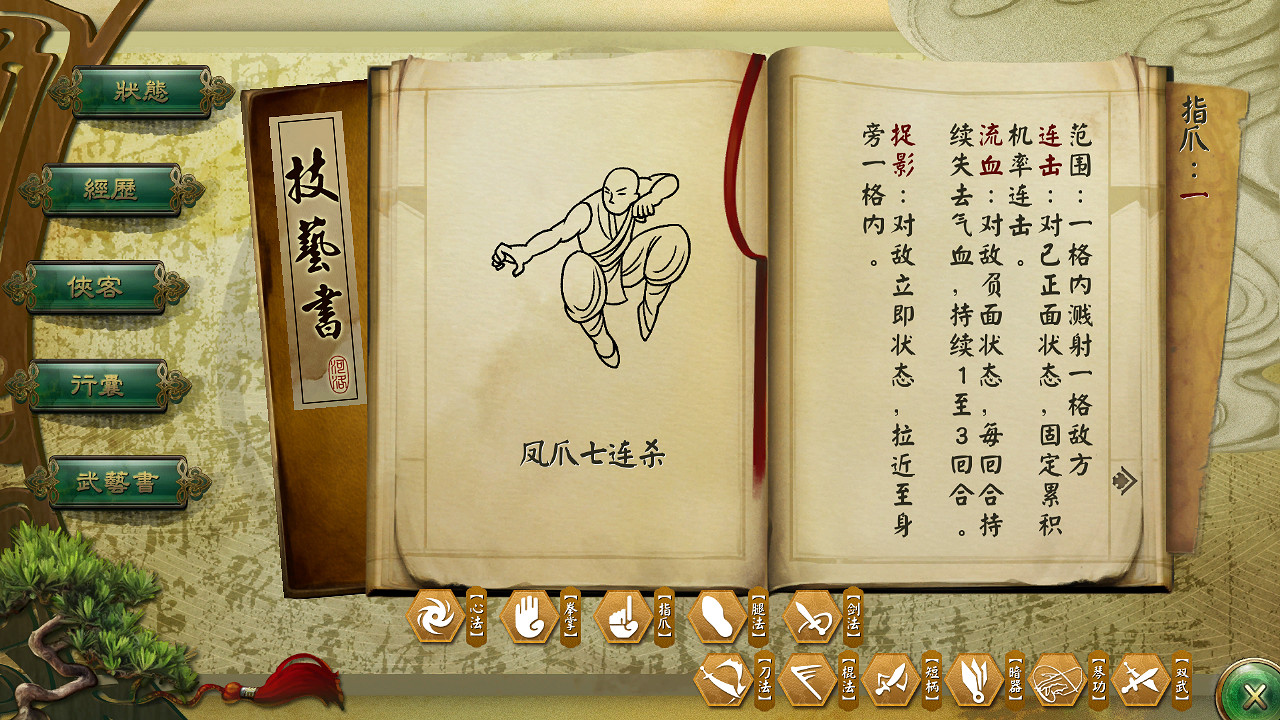 狀態
經歷
俠客
行囊
武藝書
技藝書
河洛
凤爪七连杀
指爪：一
范围：一格内溅射一格敌方
连击：对己正面状态，固定累积
机率连击。
流血：对敌负面状态，每回合持
续失去气血，持续1至3回合。
捉影：对敌立即状态，拉近至身
旁一格内。
【心法】
【拳掌】
【指爪】
【腿法】
【剑法】
【刀法】
【棍法】
【短柄】
【暗器】
【琴功】
【双武】